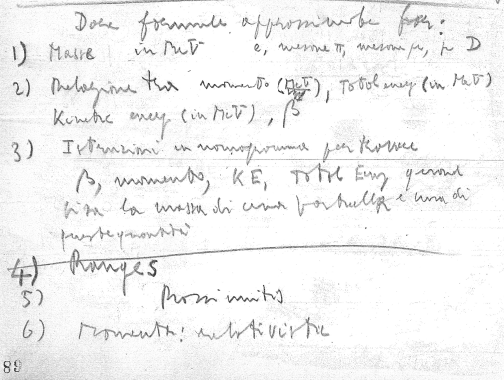 Dare formule approssimate per:
1) Masse in MeV e, mesone π, mesone μ, p D
2) Relazione tra momento (MeV), Total energ (in MeV)
Kinetic energ (in MeV), β
3) Istruzioni in nomogramma per trovare
β, momento, KE, Total Energ quand
si sa la massa di una particella e una di
queste quantità
4) Ranges
5) Prossimità
6) Momenti: relativistic
89